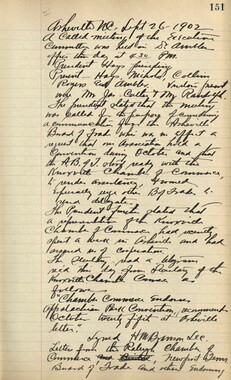 151
Asheville N.C. Sept 26-1902
A Called meeting of the Executive
Committee was held in Dr Ambler
office this day at 4.30 P.M.
President Hays presiding
Present Hays, Nichols, Collins
Rogers and Ambler.
why Mr. Mc &
The President states that the meeting
was called for the purpose of
communication from the Asheville
Board of Trade which was in effect a
request that our Association hold a
Convention during October and that
the A.B. of T. with the
Knoxville Chamber of Commerce
to render assistance
especially the B of Trade
The President further stated that
a representative of the Knoxville
Chamber of Commerce had recently
spent a week in Asheville and had
of cooperation.
The Secretary had a telegram
this day from Secretary of the
Knoxville Chamber Commerce as
follows
"Chamber Commerce Endorses
Appalachian Park Convention,
October at Asheville
letter."
Signed H.M. Branson Sec.
Letter from the Raleigh Chamber of
Commerce and Newport
Board of Trade and others endorsing